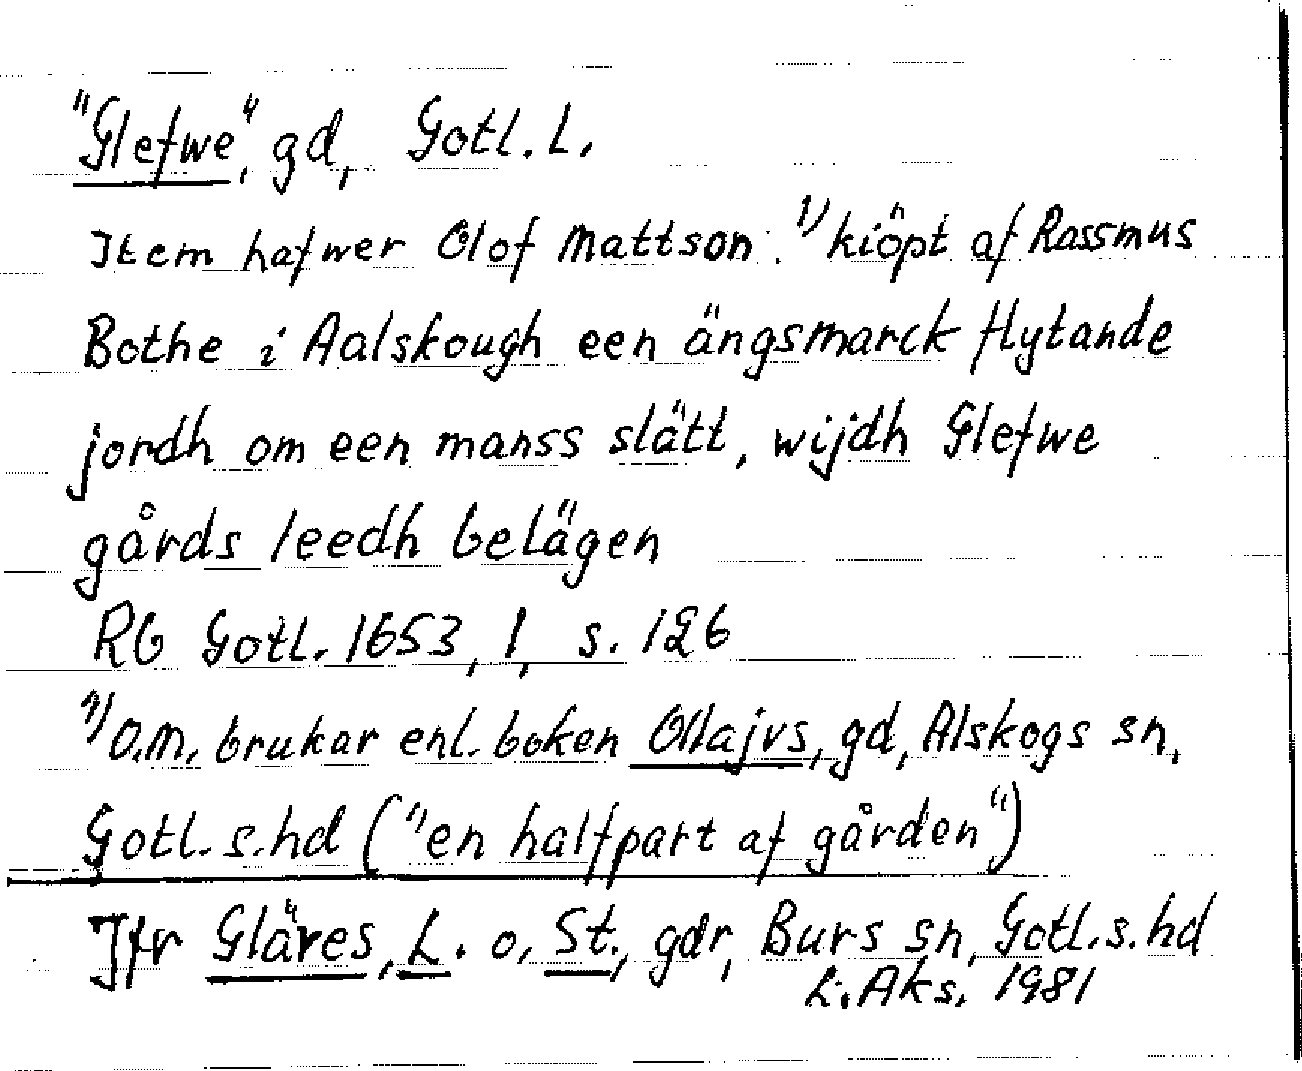 "Glefwe", gd, Gotl. L.
Item hafwer Olof Mattson ¹⁾ kiöpt af Rassmus
Bothe i Aalskough een ängsmarck flytande
jordh om een manss slätt, wijdh Glefwe
gårds leedh belägen
RG Gotl. 1653, 1, s. 126
¹⁾ O.M. brukar enl. boken Ollajvs, gd, Alskogs sn,
Gotl. s. hd ("en halfpart af gården")
Jfr Gläves, L. o. St., gdr, Burs sn, Gotl. s. hd
L. Aks. 1981